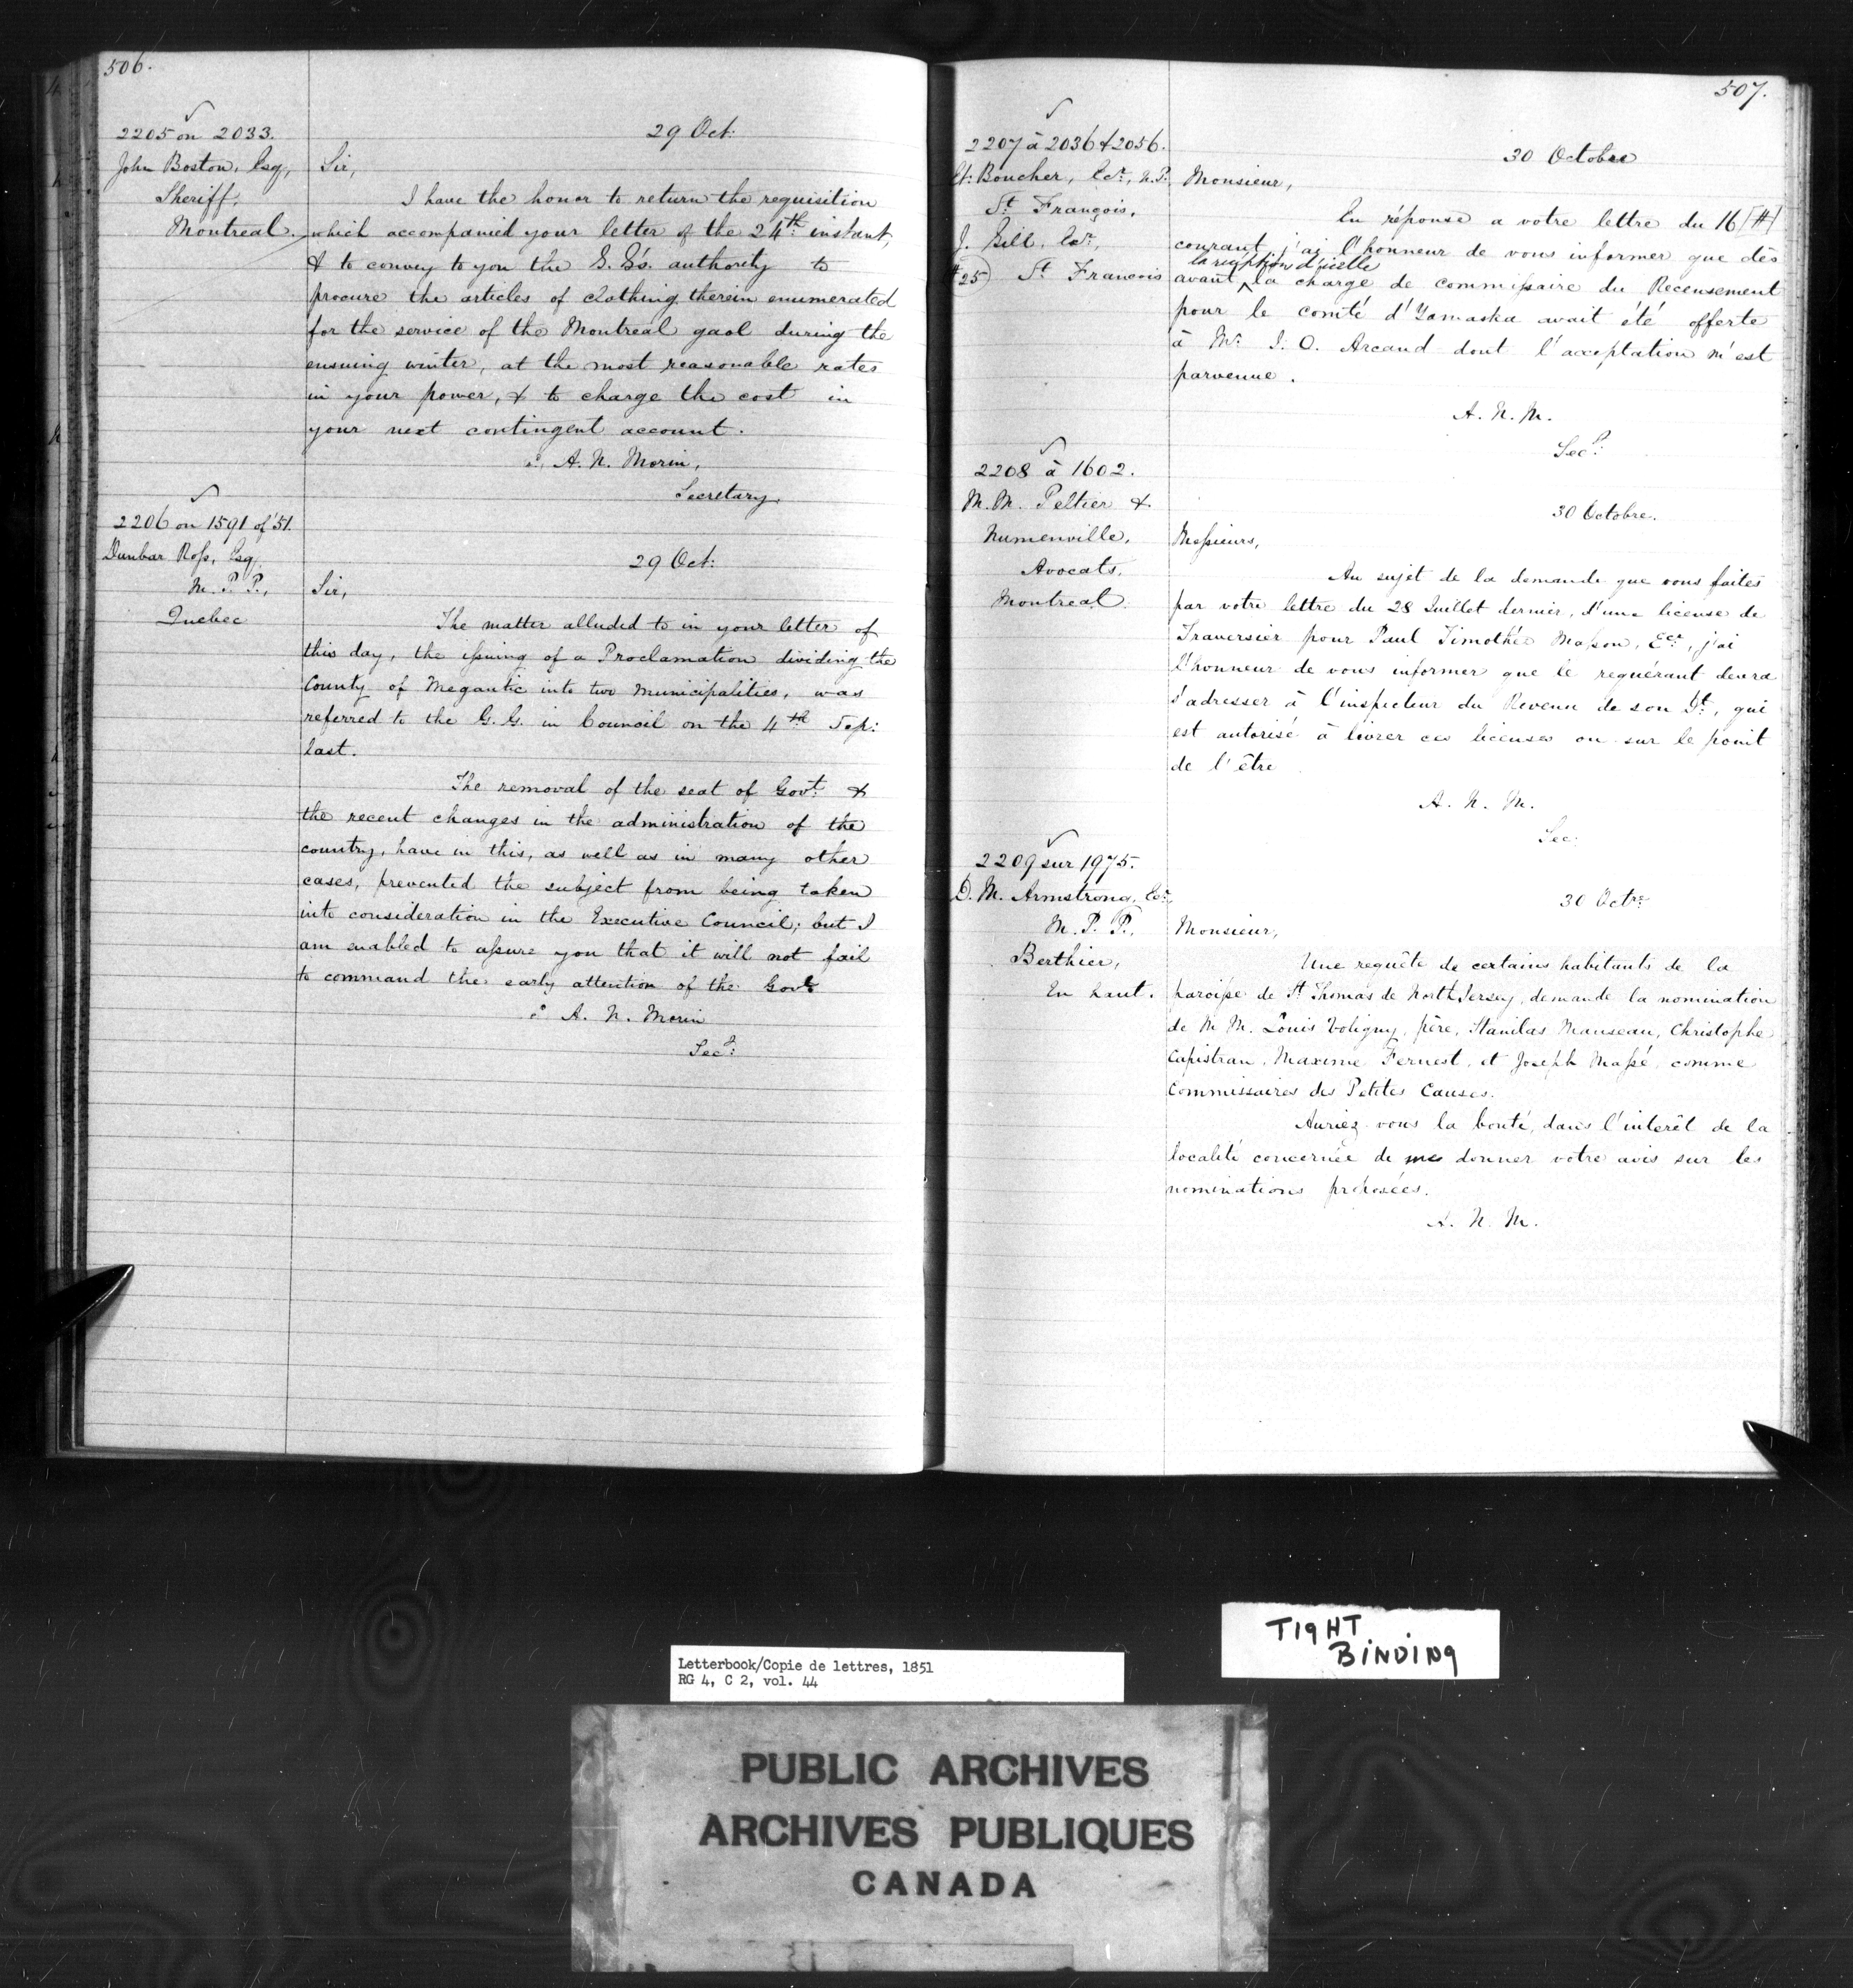 506.
2205 on 2033.
John Boston, Esq,
Sheriff,
Montreal.
29 Oct:
Sir,
I have the honor to return the requisition
which accompanied your letter of the 24th instant,
& to convey to you the G. G's. authority to
procure the articles of clothing therein enumerated
for the service of the Montreal gaol during the
ensuing winter, at the most reasonable rates
in your power, & to charge the cost in
your next contingent account.
A. N. Morin,
Secretary.
2206 on 1591 of '51.
Dunbar Ross, Esq,
M. P. P.,
Quebec
29 Oct:
Sir,
The matter alluded to in your letter of
this day, the issuing of a Proclamation dividing the
County of Megantic into two Municipalities, was
referred to the G. G. in Council on the 4th Sep:
last.
The removal of the seat of Govt: &
the recent changes in the administration of the
country, have in this, as well as in many other
cases, prevented the subject from being taken
into consideration in the Executive Council; but I
am enabled to assure you that it will not fail
to command the early attention of the Govt
A. N. Morin
Secy:
507.
2207 à 2036 & 2056.
Et: Boucher, Ecr, N.P.
St François,
J. Gill, Ecr,
#25) St Francois
30 Octobre
Monsieur,
En réponse a votre lettre du 16 [#]
courant, j'ai l'honneur de vous informer que dès
la réception d'icelle
avant la charge de commissaire du Recensement
pour le comté d'Yamaska avait été offerte
à Mr. J. O. Arcand dont l'acceptation m'est
parvenue.
A. N. M.
Secy:
2208 à 1602.
M.M. Peltier &
Avocats,
Montreal.
30 Octobre.
Messieurs,
Au sujet de la demande que vous faites
par votre lettre du 28 Juillet dernier, d'une license de
Traversier pour Paul Timothée Masson, Ecr, j'ai
l'honneur de vous informer que le requérant devra
s'adresser à l'inspecteur du Revenu de son Dt, qui
est autorisé à livrer ces licenses ou sur le point
de l'être
A. N. M.
Sec:
2209 sur 1975.
D. M. Armstrong, Ecr,
M. P. P.,
Berthier,
En haut.
30 Octre
Monsieur,
Une requête de certains habitants de la
paroisse de St Thomas de North Jersey, demande la nomination
de M M. Louis Voligny, père, Stanilas Manseau, Christophe
Capistran, Maxime Fernest, et Joseph Massé, comme
Commissaires des Petites Causes.
Auriez-vous la bonté, dans l'interêt de la
localité concernée de me donner votre avis sur les
nominations proposées.
A. N. M.
TIGHT
BINDING
Letterbook/Copie de lettres, 1851
RG 4, C 2, vol. 44
PUBLIC ARCHIVES
ARCHIVES PUBLIQUES
CANADA